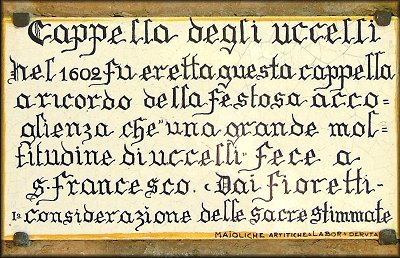 Cappella degli uccelli
Nel 1602 fu eretta questa cappella
a ricordo della festosa acco-
glienza che "una grande mol-
titudine di uccelli" fece a
S. Francesco. (Dai Fioretti -
Iª considerazione delle sacre stimmate
MAIOLICHE ARTITICHE LABOR DERUTA